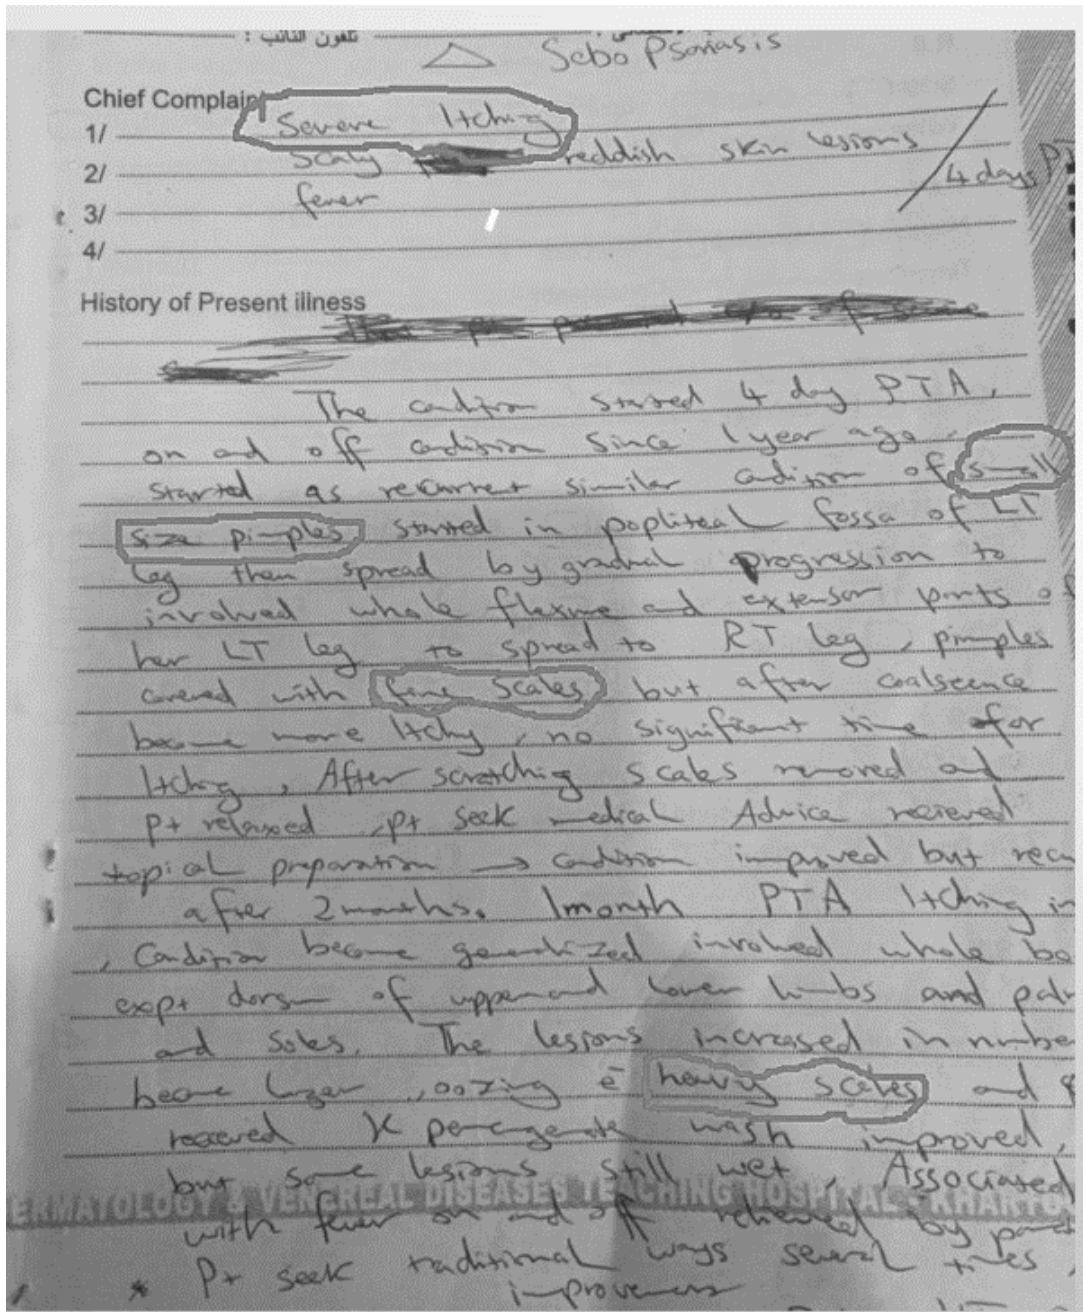 تلفون النائب :
Sebo Psoriasis
Chief Complaint
1/ Severe Itching
2/ Scaly reddish skin lesions
4 days PT
3/ fever
4/
History of Present iliness
The condition started 4 day PTA,
on and off condition since 1 year ago.
started as recurrent similar condition of small
size pimples started in popliteal fossa of LT
leg then spread by gradual progression to
involved whole flexure and extensor parts of
her LT leg to spread to RT leg, pimples
covered with fine scales but after coalscence
become more Itchy, no significant time for
Itching, After scratching scales removed and
Pt relaxed, pt seek medical Advice recieved
topical preparation → condition improved but recu
after 2 months. 1 month PTA Itching in
, Condition become generalized involved whole bo
exept dorsum of upper and lower limbs and palm
and soles. The lesions increased in number
become larger, oozing ē heavy scales and
received K permanganate wash improved,
but some lesions still wet, Associated
ERMATOLOGY & VENEREAL DISEASES TEACHING HOSPITAL - KHARTOU
with fever on and off relieved by para
* Pt seek traditional ways several times,
improvement